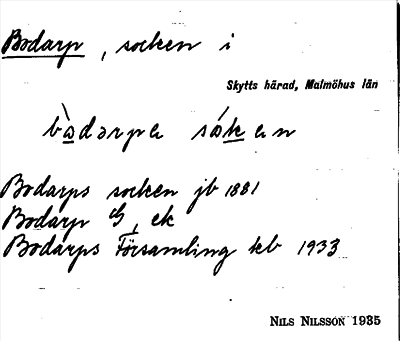 Bodarp, socken i
Skytts härad, Malmöhus län
Bodarps socken jb 1881
Bodarp G, ek
Bodarps Församling kb 1933
NILS NILSSON 1935